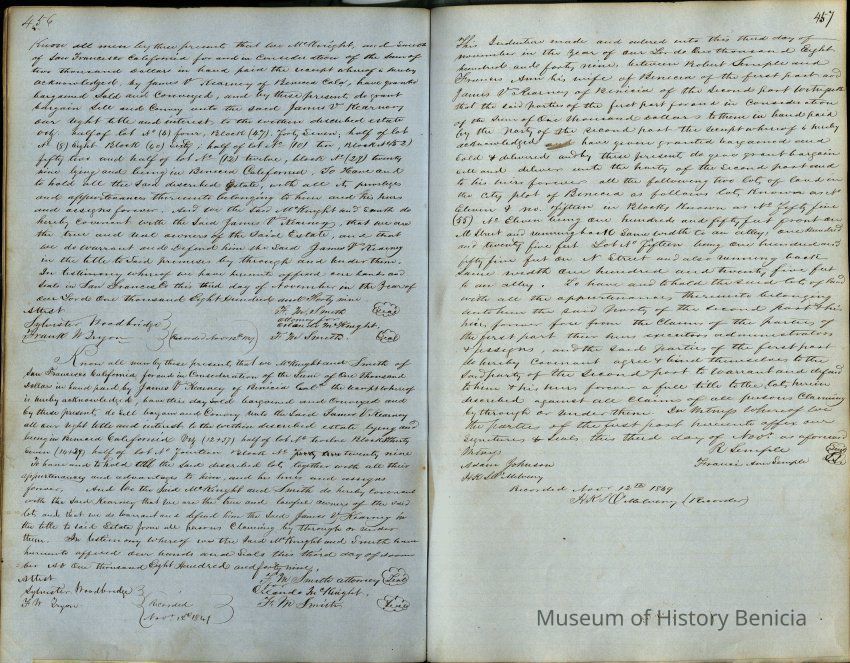 456
Know all men by these presents that we McKnight, and Smith
of San Francisco California for and in consideration of the sum of
two thousand Dollars in hand paid the receipt whereof is hereby
acknowledged, by James V Kearney of Benicia Cala, have granted
bargained Sold and Conveyed, and by these presents do grant
bargain Sell and Convey unto the said James V Kearney
our right title and interest to the within described estate
viz. half of lot No (4) four, Block (47) forty Seven, half of lot
No (8) Eight Block (60) Sixty; half of lot No (10) ten, Block (52)
fifty two and half of lot No (12) twelve, block No (29) twenty
nine lying and being in Benicia California, To Have and
to hold all the said described Estate, with all its privileges
and appurtenances thereunto belonging to him and his heirs
and assigns forever. And we the Said McKnight and Smith do
hereby Covenant with the Said James V Kearney, that we are
the true and owners of the Said Estate, and that
we do warrant and Defend him the Said James V Kearney
in the title to Said premises by through and under them.
In testimony whereof we have hereunto affixed our hands and
Seals in San Francisco this third day of November in the Year of
our Lord One thousand Eight Hundred and Forty nine
Attest F. M. Smith Seal
Sylvester Woodbridge attorney for McKnight
Frank W Tryon Recorded Nov 12th 1849 F. M. Smith Seal
Know all men by these presents, that we McKnight and Smith of
San Francisco California for and in Consideration of the Sum of One Thousand
Dollars in hand paid by James V Kearney of Benicia Cala the receipt whereof
is hereby acknowledged, have this day Sold bargained and Conveyed and
by these presents do Sell bargain and Convey unto the Said James V Kearney
all our right title and interest to the within described estate lying and
being in Benicia California Viz (12+37) half of lot No twelve Block thirty
Seven (14+29) half of lot No fourteen & Block No twenty nine
To have and to hold the Said described lots, together with all their
appurtenances and advantages to him, and his heirs and assigns
forever. And we the Said McKnight and Smith do hereby covenant
with the Said Kearney that we are the true and lawful owners of the said
lots and that we do warrant and defend him the Said James V Kearney in
the title to said Estate from all persons Claiming by through or under
them. In testimony whereof we the Said McKnight and Smith have
hereunto affixed our hands and Seals this third day of
AD One thousand Eight Hundred and forty nine.
Attest F M Smith attorney Seal
Sylvester Woodbridge McKnight.
F. W. Tryon Recorded F. M. Smith Seal
Nov 12th 1849
457
This Indenture made and entered into this third day of
November in the Year of our Lord One thousand Eight
hundred and forty nine, between Robert Semple and
Frances Ann his wife of Benicia of the first part and
James V Kearney of Benicia of the Second part Witnesseth
that the said parties of the first part for and in Consideration
of the Sum of One Thousand dollars to them in hand paid
by the Party of the Second part the receipt whereof is hereby
acknowledged have given granted bargained and
Sold & delivered and by these presents do give grant bargain
sell and deliver unto the party of the Second part and
to his heirs forever all the following two lots of land in
the City plot of Benicia as follows lots Known as No
Eleven & No fifteen in Blocks Known as No fifty five
(55) No Eleven being one hundred and fifty feet front on
M Street and running back Same width to an alley, one hundred
and twenty five feet Lot No fifteen being one hundred and
fifty five feet on N Street and also running back
Same width One hundred and twenty five feet
to an alley. To have and to hold the Said lots of land
with all the appurtenances thereunto belonging
unto him the Said Party of the Second part & his
heirs forever free from the Claims of the parties of
the first part their heirs executors administrators
& assigns, and the Said parties of the first part
do hereby Covenant agree & bind themselves to the
Said party of the Second part to Warrant and defend
to him & his heirs forever a full title to the lots herein
described against all Claims of all persons Claiming
by through or under them. In Witness Whereof we
the parties of the first part hereunto affix our
Signatures & Seals the third day of Nov. as aforesaid
Witness R Semple
Adam Johnson Frances Ann Semple
Recorded Nov 12th 1849
(Recorder)
Museum of History Benicia